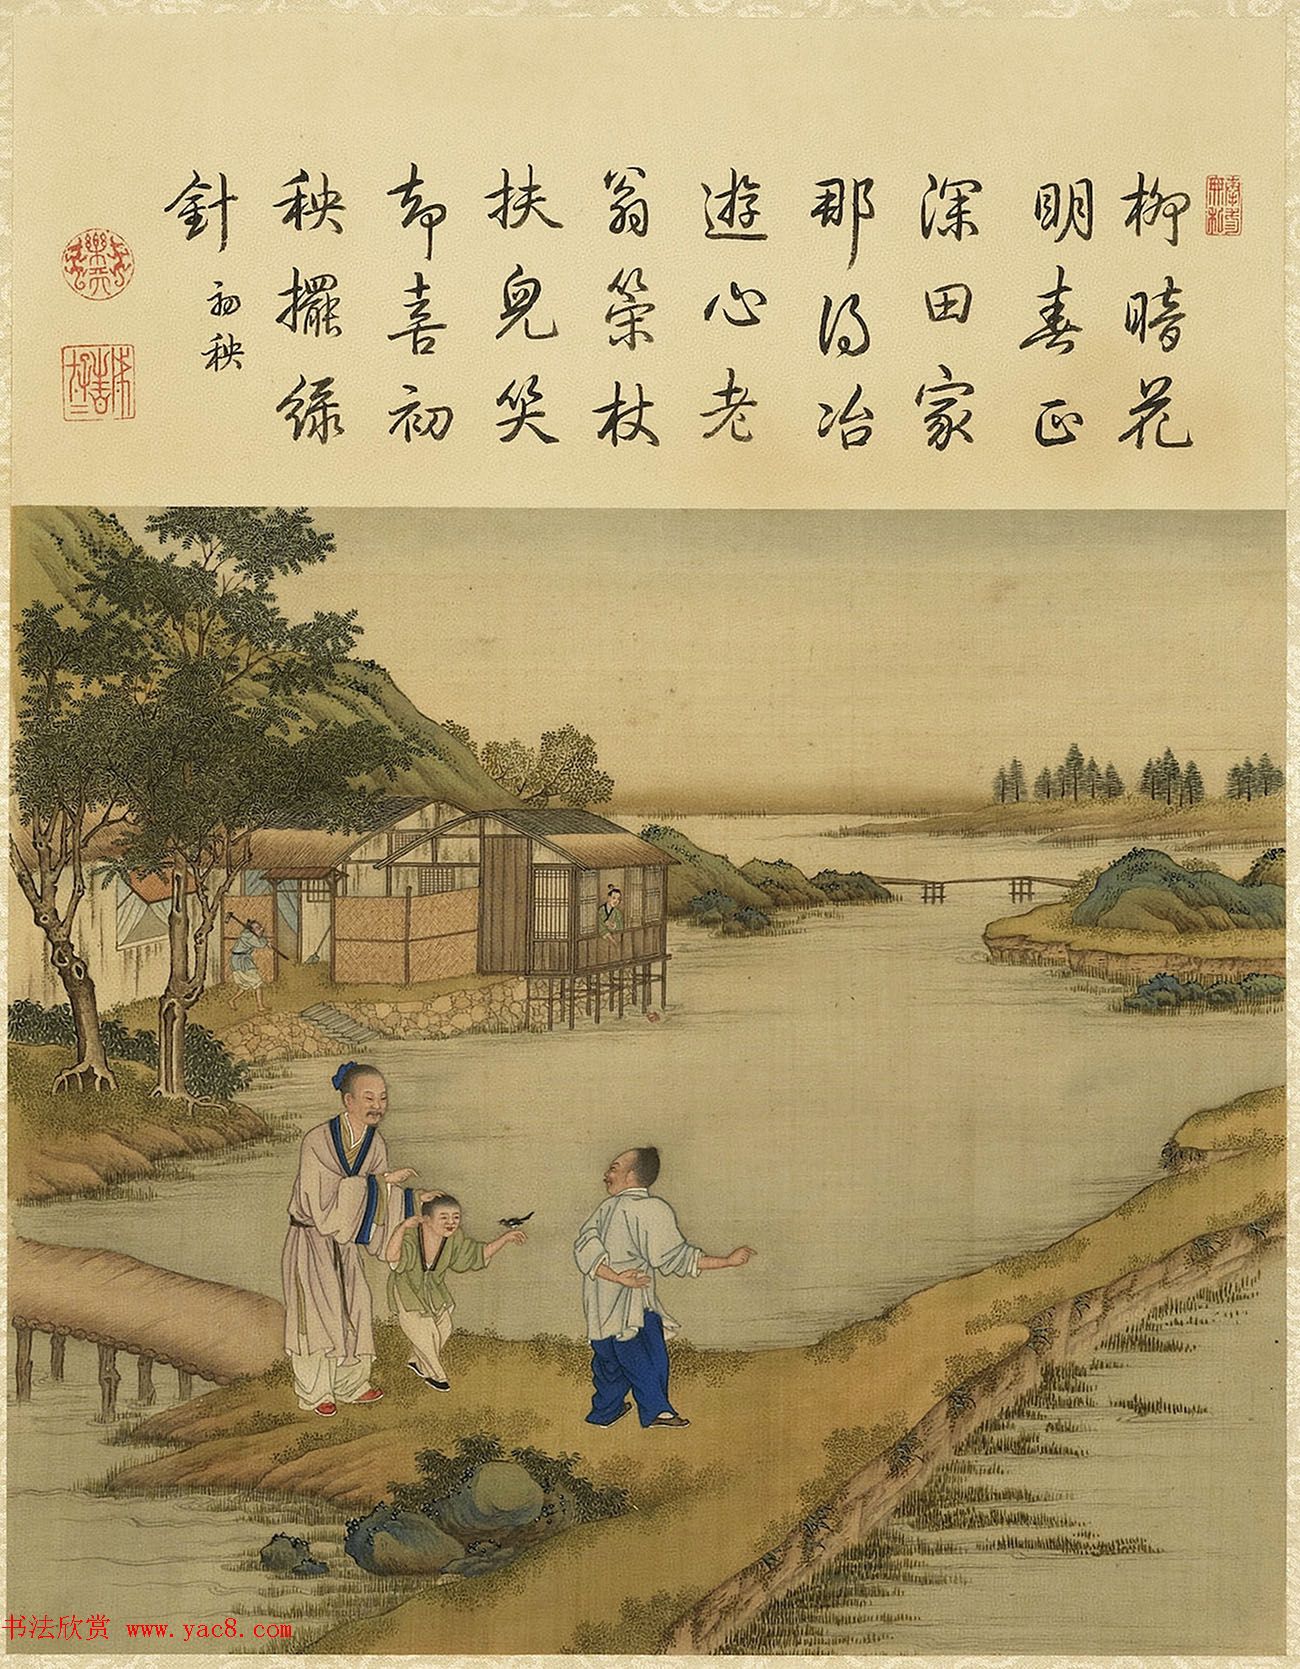 柳暗花
明春正
深田家
那得冶
遊心老
翁策杖
扶兒笑
却喜初
秧擺綠
針
初秧
书法欣赏 www.yac8.com